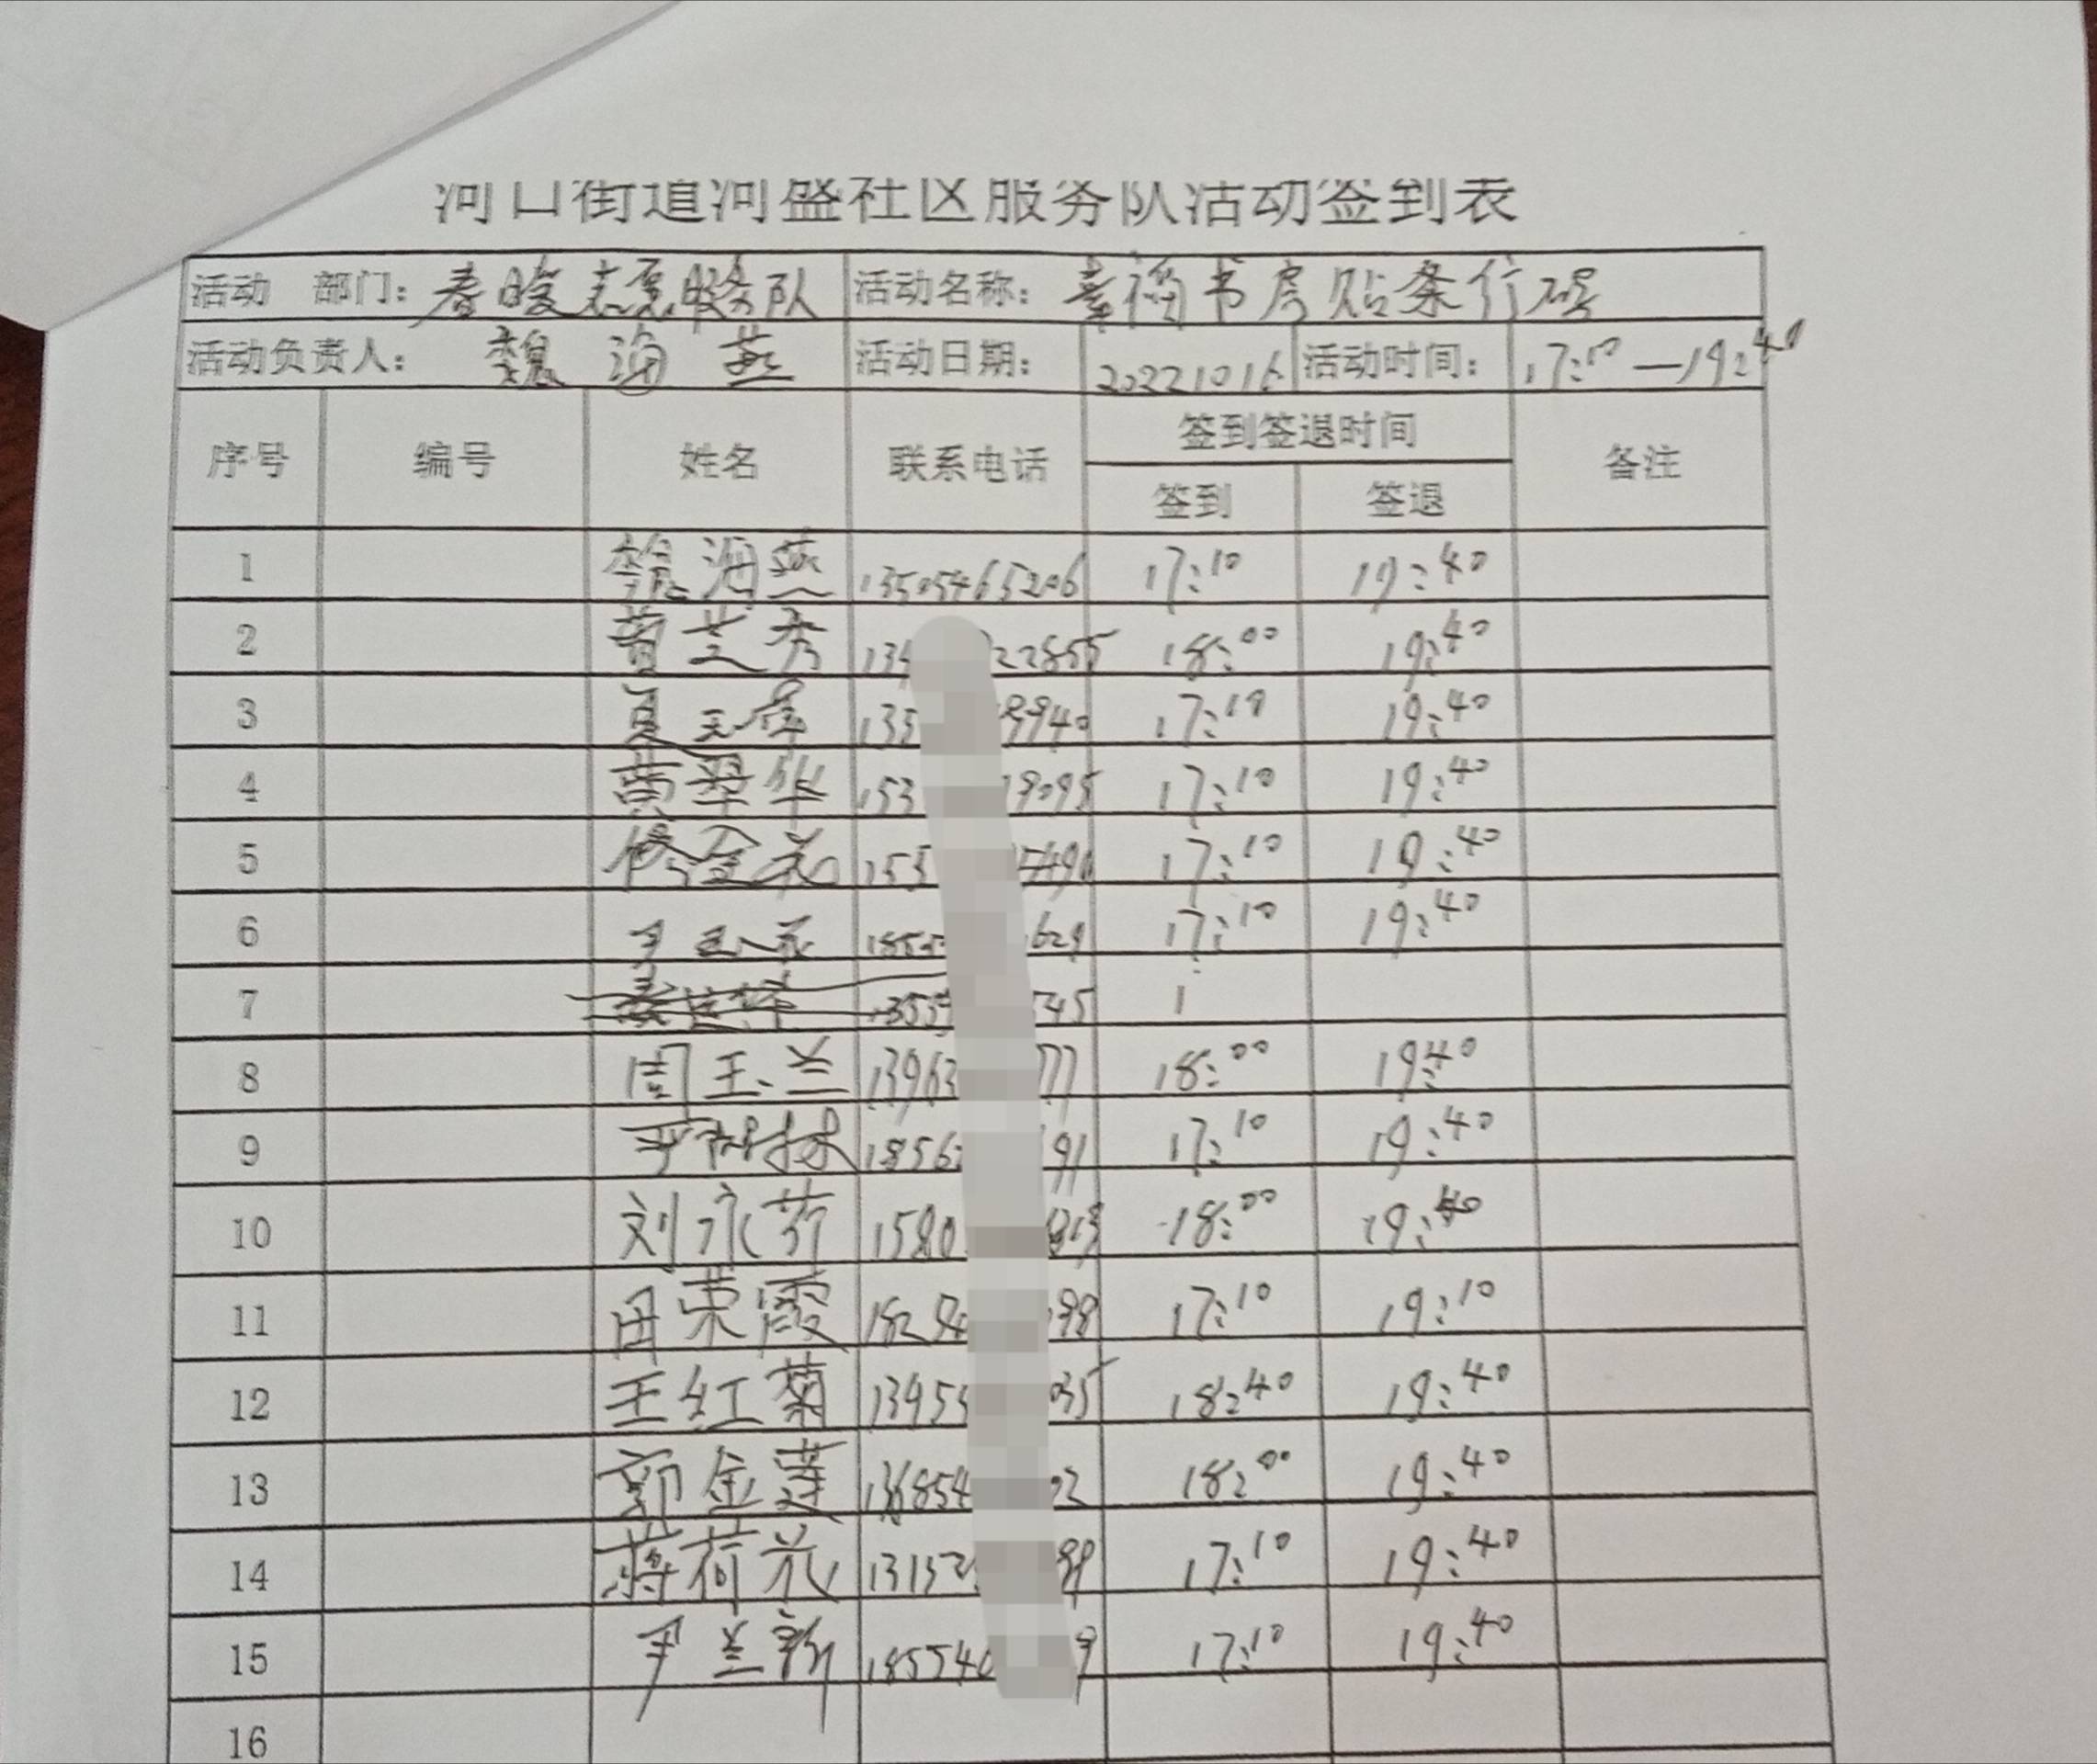 河口街道河盛社区服务队活动签到表
活动 部门： 春暖志愿服务队 活动名称： 书房贴条行
活动负责人： 魏海燕 活动日期： 20221016 活动时间： 17:10—19:40
序号 编号 姓名 联系电话 签到签退时间 备注
签到 签退
1 魏海燕 13505465206 17:10 19:40
2 134 22855 18:00 19:40
3 夏玉 133 9940 17:10 19:40
4 黄翠华 153 19095 17:10 19:40
5 修金花 153 17:10 19:40
6 629 17:10 19:40
7 545 1
8 周玉兰 13963 77 18:00 19:40
9 1856 91 17:10 19:40
10 刘永芬 1580 18:00 19:40
11 田荣霞 98 17:10 19:10
12 王红菊 1395 35 18:40 19:40
13 郭金莲 136854 02 18:00 19:40
14 蒋荷花 13152 17:10 19:40
15 尹兰新 18554 9 17:10 19:40
16